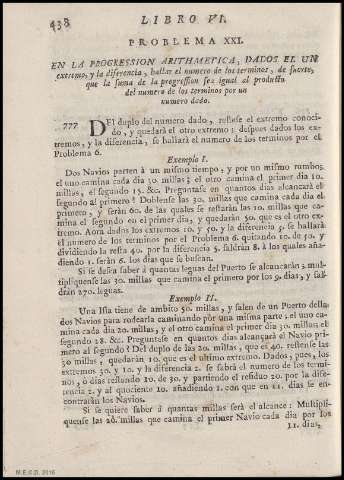 438
LIBRO VI.
PROBLEMA XXI.
EN LA PROGRESSION ARITHMETICA, DADOS EL UN
extremo, y la diferencia, hallar el numero de los terminos, de suerte,
que la suma de la progression sea igual al producto
del numero de los terminos por un
numero dado.
777 DEl duplo del numero dado, restese el extremo conoci-
do, y quedará el otro extremo: despues dados los ex-
tremos, y la diferencia, se hallará el numero de los terminos por el
Problema 6.
Exemplo I.
Dos Navios parten à un mismo tiempo, y por un mismo rumbo,
el uno camina cada dia 30. millas; el otro camina el primer dia 10.
millas, el segundo 15. &c. Preguntase en quantos dias alcanzará el
segundo al primero? Doblense las 30. millas que camina cada dia el
primero, y serán 60. de las quales se restarán las 10. millas que ca-
mina el segundo en el primer dia, y quedarán 50. que es el otro ex-
tremo. Aora dados los extremos 10. y 50. y la diferencia 5. se hallará
el numero de los terminos por el Problema 6. quitando 10. de 50. y
dividiendo la resta 40. por la diferencia 5. saldrán 8. à los quales aña-
diendo 1. serán 9. los dias que se buscan.
Si se desea saber à quantas leguas del Puerto se alcanzarán; mul-
tipliquense las 30. millas que camina el primero por los 9. dias, y sal-
drán 270. leguas.
Exemplo II.
Una Isla tiene de ambito 50. millas, y salen de un Puerto della
dos Navios para rodearla caminando por una misma parte; el uno ca-
mina cada dia 20. millas, y el otro camina el primer dia 30. millas, el
segundo 28. &c. Preguntase en quantos dias alcanzará el Navio pri-
mero al segundo? Del duplo de las 20. millas, que es 40. restense las
30 millas, y quedarán 10. que es el ultimo extremo. Dados, pues, los
extremos 30. y 10. y la diferencia 2. se sabrá el numero de los termi-
nos, ò dias restando 10. de 30. y partiendo el residuo 20. por la dife-
rencia 2. y al quociente 10. añadiendo 1. con que en 11. dias se en-
contrarán los Navios.
Si se quiere saber à quantas millas será el alcance: Multipli-
quense las 20. millas que camina el primer Navio cada dia por los
11. dias,
M.E.C.D. 2016